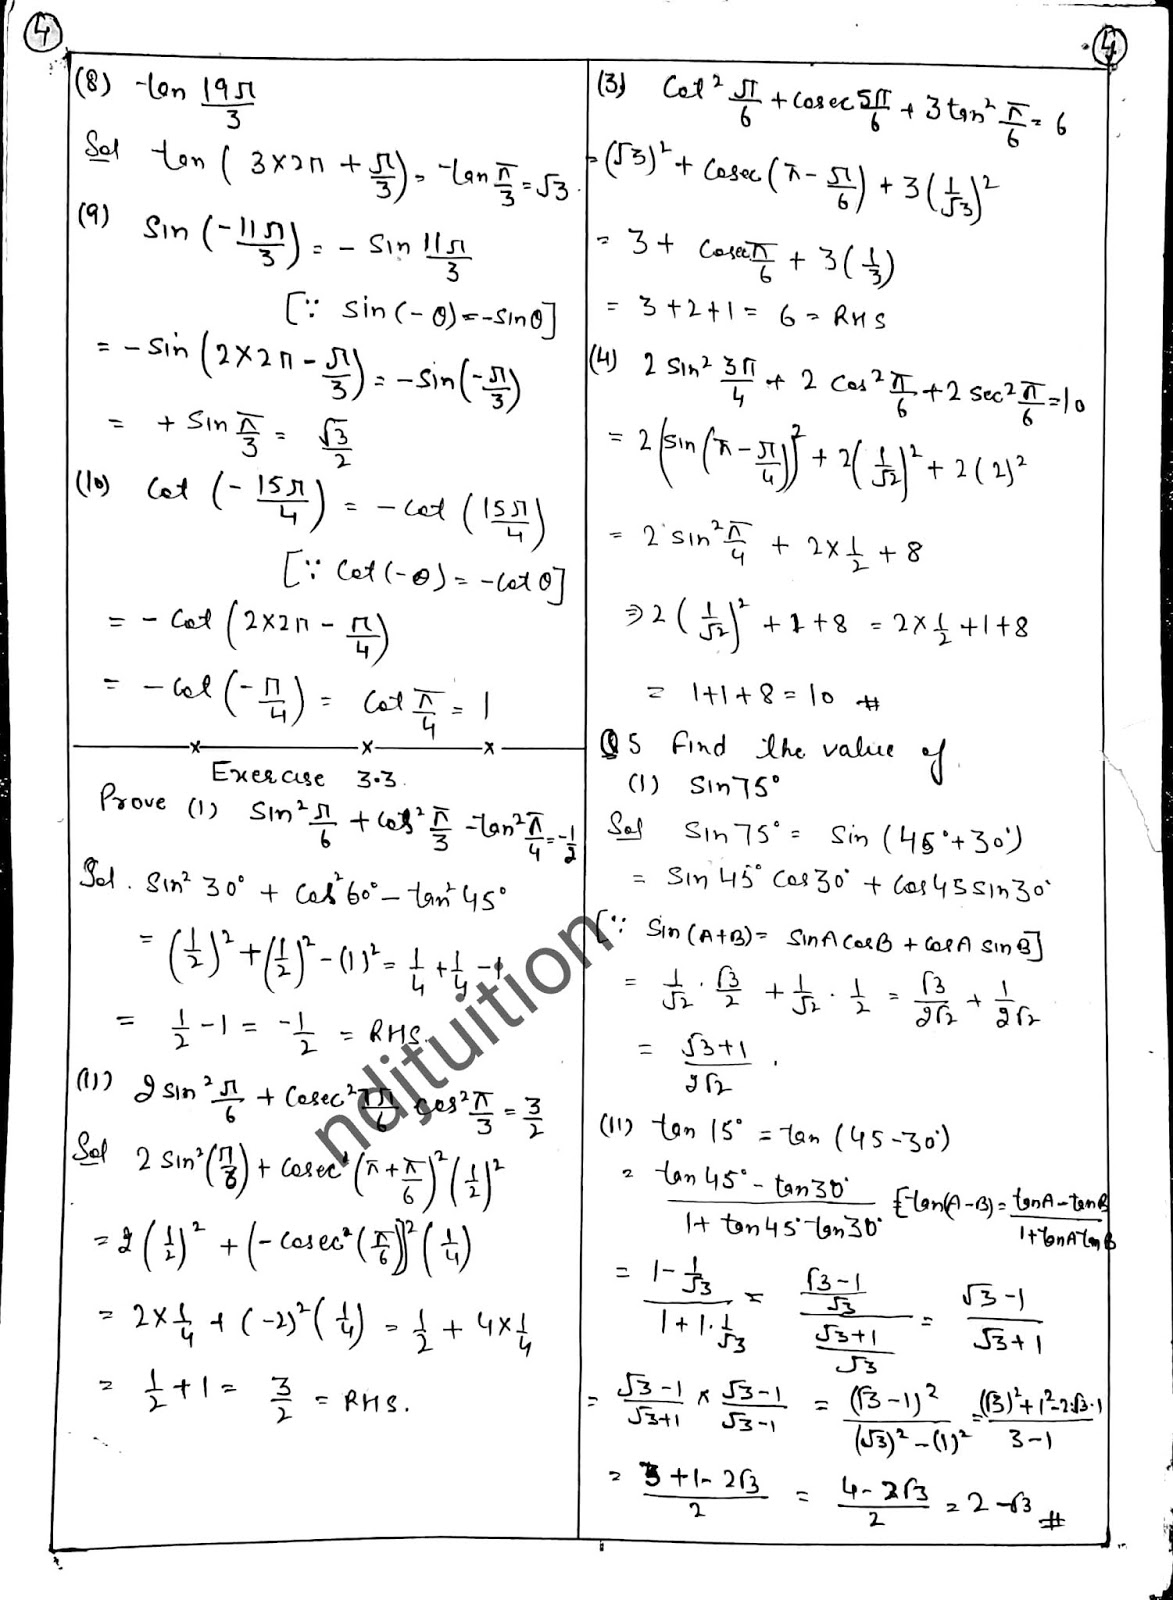 4
4
(8) tan 19π/3
Sol tan ( 3×2π + π/3 ) = tan π/3 = √3.
(9) Sin (-11π/3) = - Sin 11π/3
[∵ Sin(-θ) = -Sinθ]
= - Sin (2×2π - π/3) = -Sin(-π/3)
= + Sin π/3 = √3/2
(10) Cot (-15π/4) = - Cot (15π/4)
[∵ Cot(-θ) = -Cotθ]
= - Cot (2×2π - π/4)
= - Cot (-π/4) = Cot π/4 = 1
x x x
Exercise 3.3.
Prove (1) Sin² π/6 + Cos² π/3 - tan² π/4 = -1/2
Sol. Sin² 30° + Cos² 60° - tan² 45°
= (1/2)² + (1/2)² - (1)² = 1/4 + 1/4 - 1
= 1/2 - 1 = -1/2 = RHS.
(11) 2 Sin² π/6 + Cosec² 7π/6 Cos² π/3 = 3/2
Sol 2 Sin² (π/6) + Cosec² (π + π/6)² (1/2)²
= 2 (1/2)² + (-Cosec² (π/6))² (1/4)
= 2×1/4 + (-2)² (1/4) = 1/2 + 4×1/4
= 1/2 + 1 = 3/2 = RHS.
(3) Cot² π/6 + Cosec 5π/6 + 3 tan² π/6 = 6
= (√3)² + Cosec (π - π/6) + 3 (1/√3)²
= 3 + Cosec π/6 + 3 (1/3)
= 3 + 2 + 1 = 6 = RHS
(4) 2 Sin² 3π/4 + 2 Cos² π/6 + 2 Sec² π/6 = 10
= 2 [Sin (π - π/4)]² + 2 (1/√2)² + 2 (2)²
= 2 Sin² π/4 + 2×1/2 + 8
⇒ 2 (1/√2)² + 1 + 8 = 2×1/2 + 1 + 8
= 1 + 1 + 8 = 10 #
Q5 Find the value of
(1) Sin75°
Sol Sin75° = Sin (45° + 30°)
= Sin 45° Cos30° + Cos45 Sin30°
[∵ Sin (A+B) = SinA CosB + CosA SinB]
= 1/√2 · √3/2 + 1/√2 · 1/2 = √3/2√2 + 1/2√2
= √3+1/2√2.
(11) tan 15° = tan (45 - 30°)
= tan 45° - tan30°/1 + tan45° tan30° {tan(A-B) = tanA - tanB/1 + tanA tanB
= 1 - 1/√3/1 + 1·1/√3 = √3-1/√3/√3+1/√3 = √3-1/√3+1
= √3-1/√3+1 × √3-1/√3-1 = (√3-1)²/(√3)² - (1)² = (√3)² + 1² - 2·√3·1/3-1
= 3+1-2√3/2 = 4-2√3/2 = 2-√3 #
ndjtuition